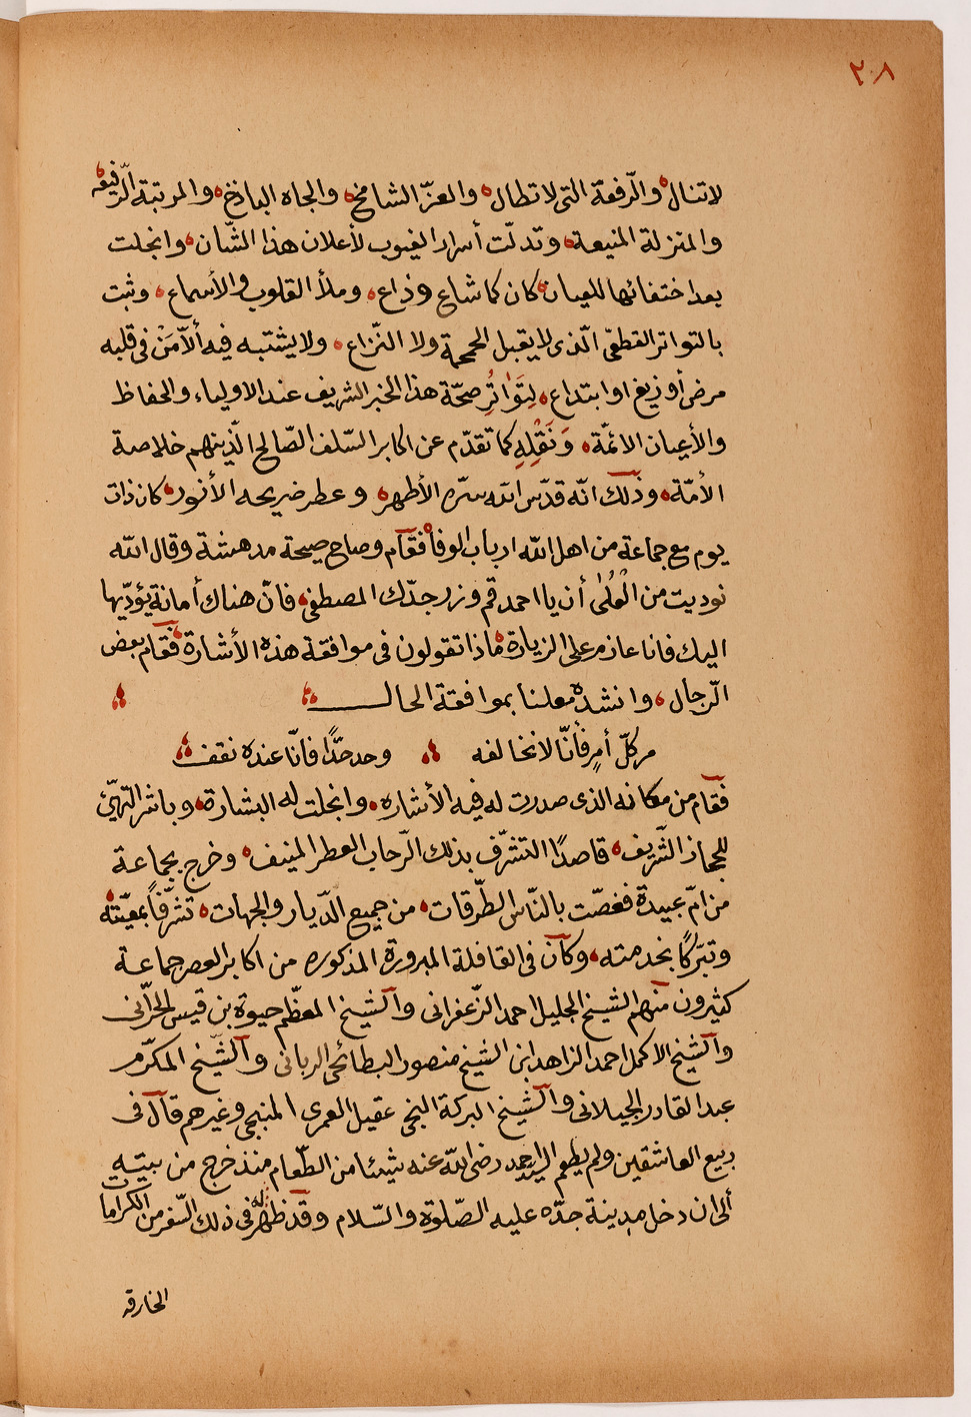 ٢٠٨
لاتنال والرّفعة التى لاتطال والعزّ الشامخ والجاه الباذخ والمرتبة الرّفيعه
والمنزلة المنيعة وتدلّت أسرار الغيوب لأعلان هذا الشّان وانجلت
بعد اختفائها للعيان كان كما شاع وذاع وملأ القلوب والأسماع وثبت
بالتواتر القطعّى الّذى لايقبل الحجمة ولا النّزاع ولا يشتبه فيه ألاّ مَنْ فى قلبه
مرض أو زيغ او ابتداع لِتَوَاتُرِ صحّة هذا الخبر الشريف عند الاولياء والحفاظ
والأعيان الائمّة وَنَقْلِهِ كما تقدّم عن اكابر السّلف الصّالح الّذينهم خلاصة
الأمّة وذلك انّه قدّس الله سرّه الأطهر وعطر ضريحه الأنور كان ذات
يوم مع جماعة من اهل الله ارباب الوفا فقام وصاح صيحة مدهشة وقال الله
نوديت من الْعُلٰى أن يا احمد قم وزر جدّك المصطفى فانّ هناك أمانة يؤدّيها
اليك فانا عازم على الزيارة ماذا تقولون فى موافقة هذه الأشارة فقام بعض
الرّجال وانشده معلنا بموافقة الحال
مر كلّ أمرٍ فأنّا لا نخالفه وحد حدًّا فانّا عنده نقف
فقام من مكانه الذى صدرت له فيه الأشاره وانجلت له البشارة وباشر التهيّئ
للحجاز الشّريف قاصدًا التشرّف بذلك الرّحاب العطر المنيف وخرج بجماعة
من امّ عبيدة فغصّت بالنّاس الطّرقات من جميع الدّيار والجهات تشرّفاً بمعيّته
وتبرّكًا بخدمته وكان فى القافلة المبرورة المذكوره من اكابر العصر جماعة
كثيرون منهم الشيخ الجليل احمد الزّعفرانى والشّيخ المعظّم حيوة بن قيس الحرّانى
والشّيخ الاكمل احمد الزاهد ابن الشيخ منصور البطائحى الربانى والشّيخ المكرّم
عبد القادر الجيلانى والشّيخ البركة عقيل العمرى المنبجى وغيرهم قال فى
ربيع العاشقين ولم يطعم السيد احمد رضى الله عنه شيئا من الطّعام منذ خرج من بيته
ألى ان دخل مدينة جدّه عليه الصّلوة والسّلام وقد ظهر له فى ذلك السّفر من الكرامات
الخارقه